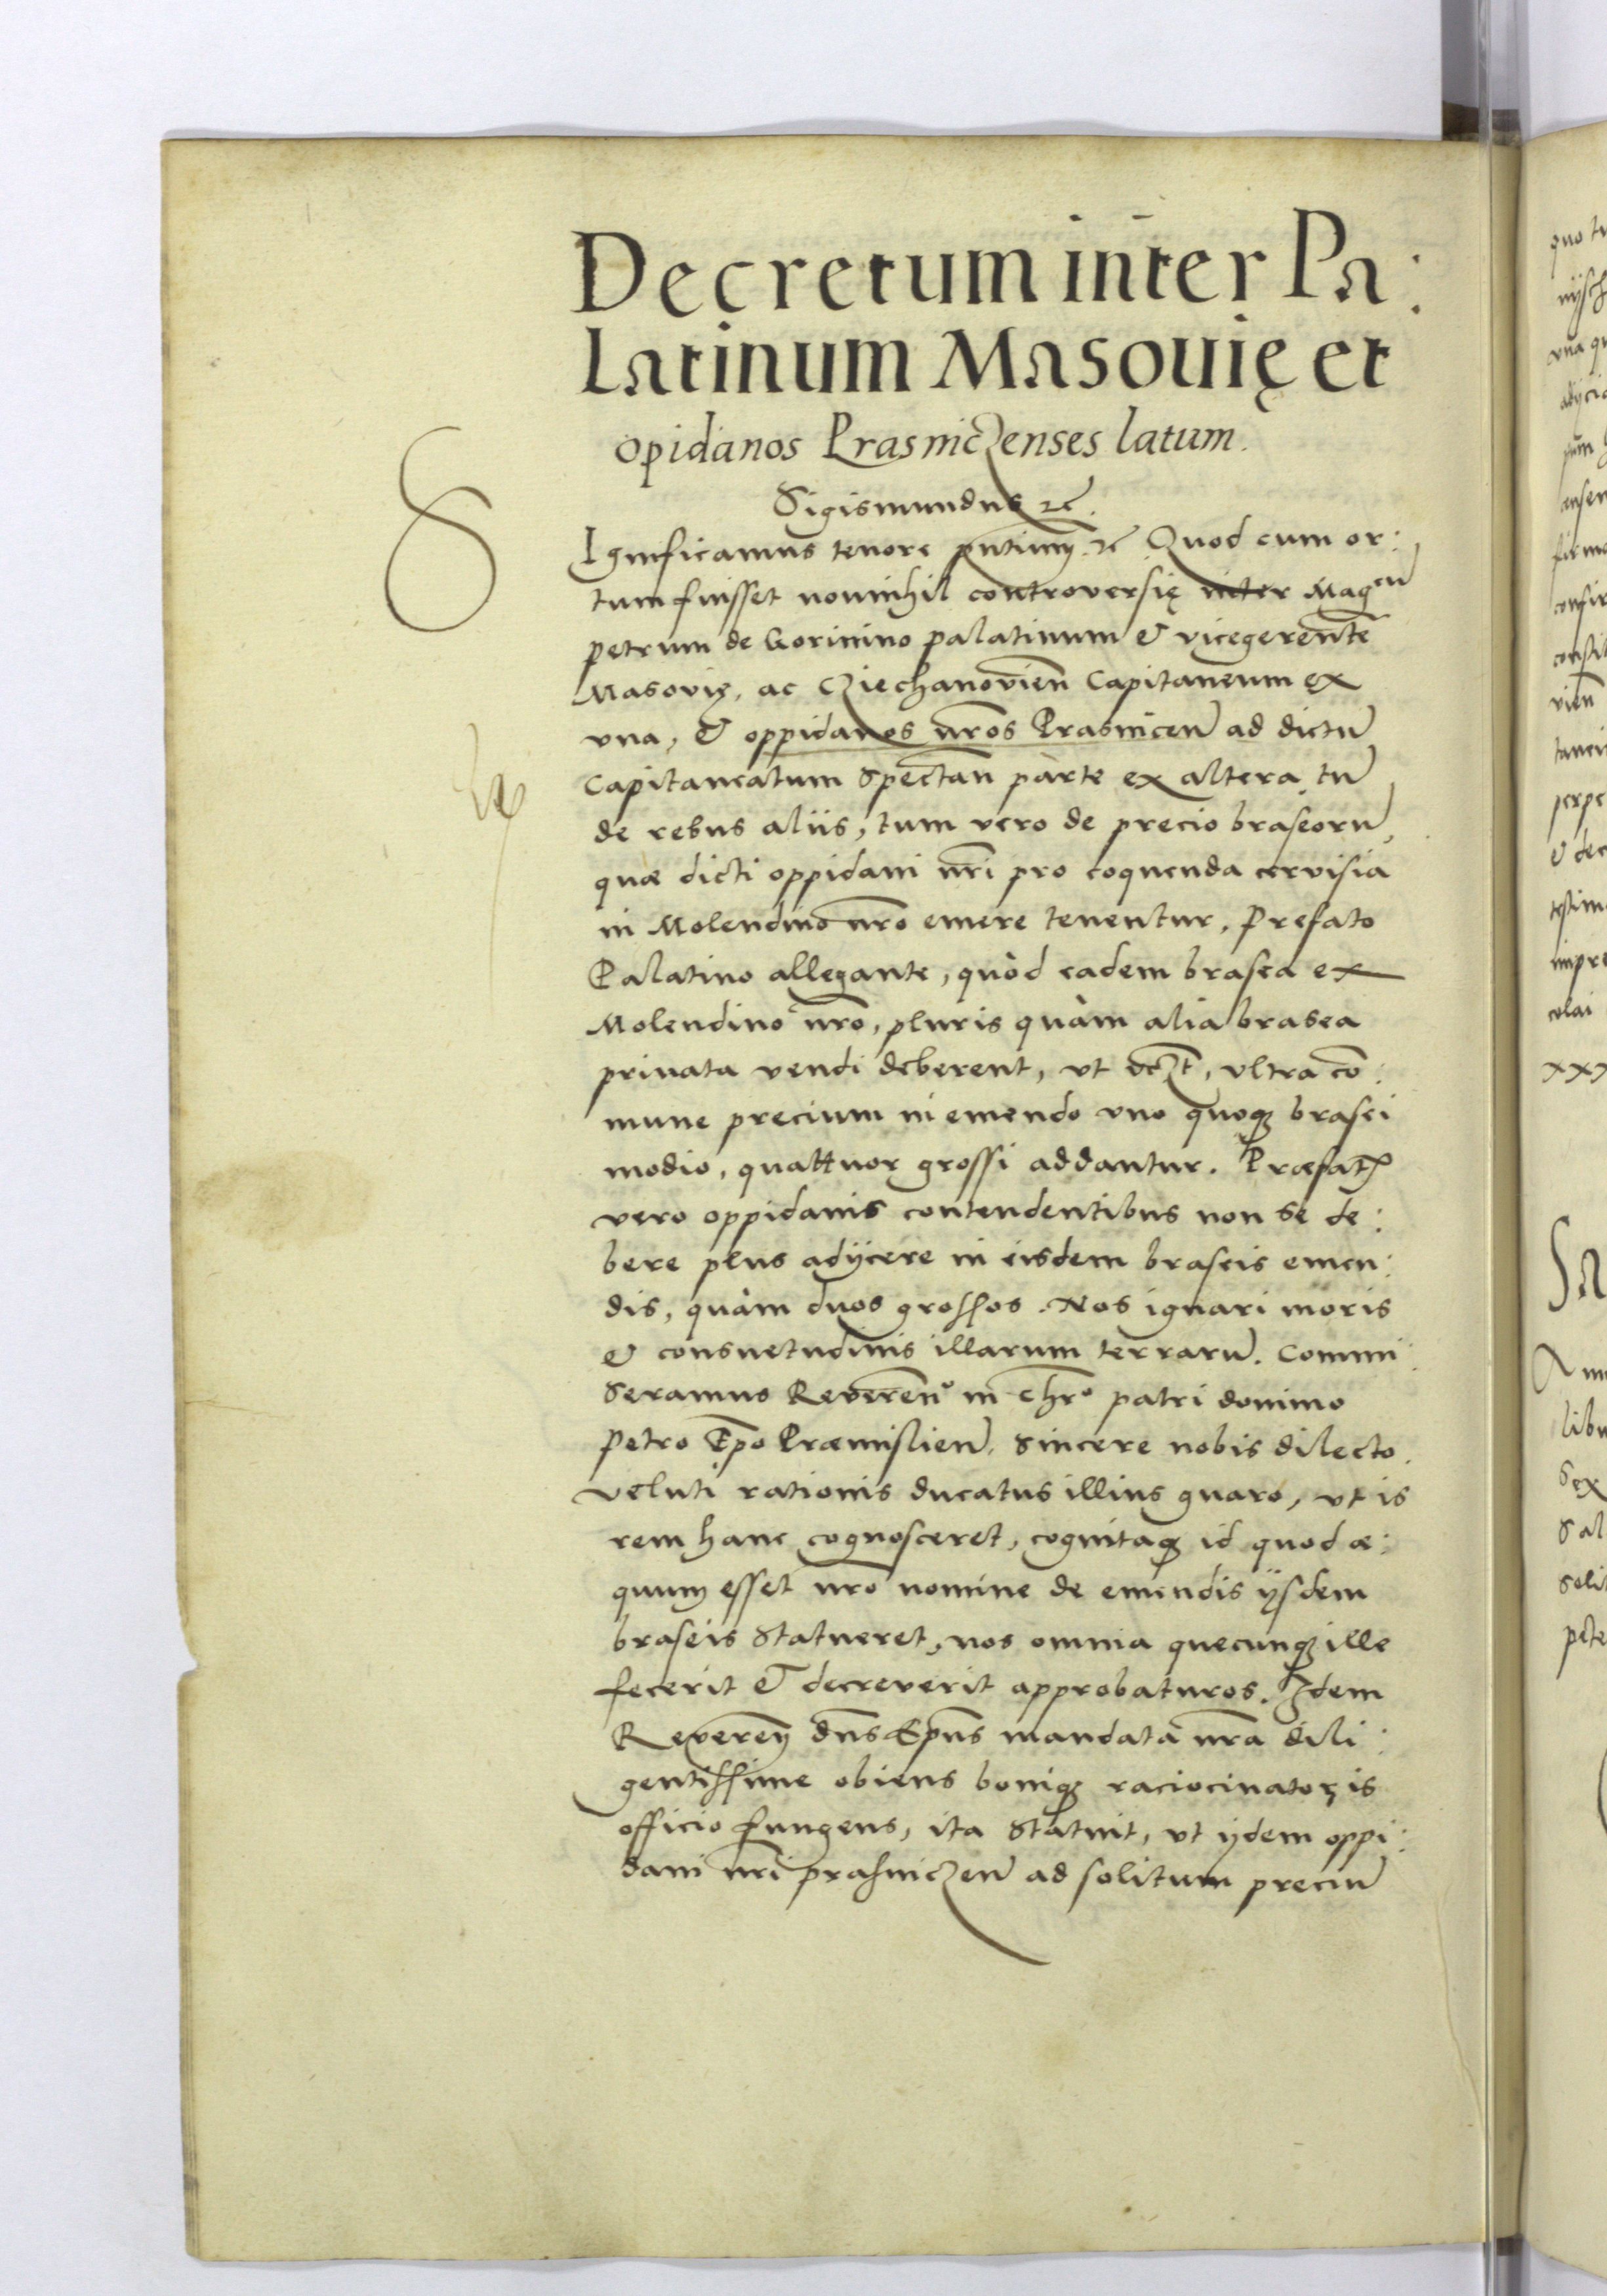 Decretum inter Pa:
Latinum Masouię et
opidanos Prasniczenses latum.
Sigismundus etc.
S
Ignificamus tenore pntium etc Quod cum or:
tum fuisset nonnihil controversię inter Mag᷑cū
petrum de Gorinino palatinum & vicegerentē
Masovię, ac Cziechanovien̄ Capitaneum ex
vna, & oppidanos nr̄os Prasnicen̄ ad dictū
Capitaneatum Spectan̄ parte ex altera, tū
de rebus aliis, tum vero de precio braseorū,
quæ dicti oppidani nr̄i pro coquenda cervisia
in Molendino nr̄o emere tenentur, Prefato
Palatino allegante, quòd eadem brasea ex
Molendino nr̄o, pluris quàm alia brasea
privata vendi deberent, vt , vltra cō:
mune precium in emendo vno quoqꝫ brasei
modio, quattuor grossi addantur. Præfatꝭ
vero oppidanis contendentibus non se de:
bere plus adijcere in eisdem braseis emen:
dis, quàm duos grossos. Nos ignari moris
& consuetudinis illarum terrarū. Commi:
seramus Reveren⁰ in Chr⁰ patri domino
Petro Ep̄o Præmislien̄, Sincere nobis dilecto.
veluti rationis ducatus illius gnaro, vt is
rem hanc cognosceret, cognitaqꝫ id quod æ:
quum esset nr̄o nomine de emendis ijsdem
braseis Statueret, nos omnia quecunqꝫ ille
fecerit & decreverit approbaturos. Idem
Reveren̄ dn̄s Ep̄us mandata nr̄a dili:
gentissime obiens boniqꝫ raciocinatoris
officio fungens, ita Statuit, vt ijdem oppi:
dani nr̄i prasniczen̄ ad solitum preciū